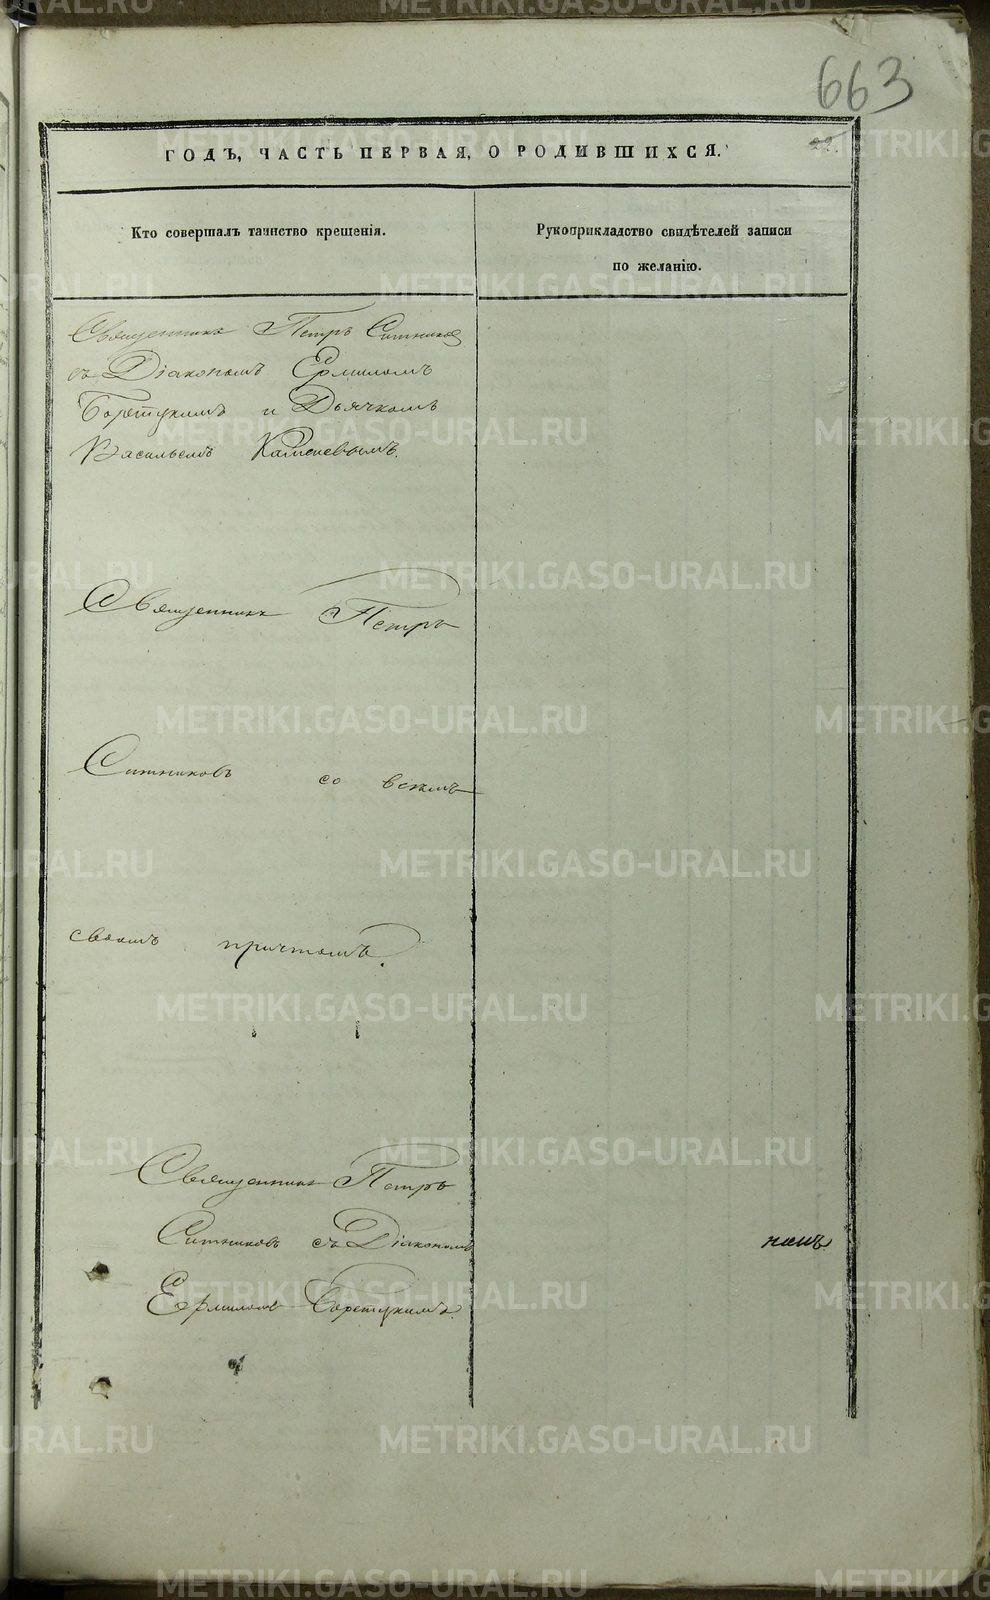 663
22.
ГОДЪ, ЧАСТЬ ПЕРВАЯ, О РОДИВШИХСЯ.
Кто совершалъ таинство крещенія.
Рукоприкладство свидѣтелей записи
по желанію.
Священникъ Петръ Ситников
съ Діакономъ Ермиломъ
Боретукимъ и Дьячкомъ
Васильемъ Каменевымъ.
Священникъ Петръ
Ситниковъ со всемъ
своимъ причтомъ.
Священникъ Петръ
Ситниковъ съ Діакономъ
Ермиломъ
METRIKI.GASO-URAL.RU